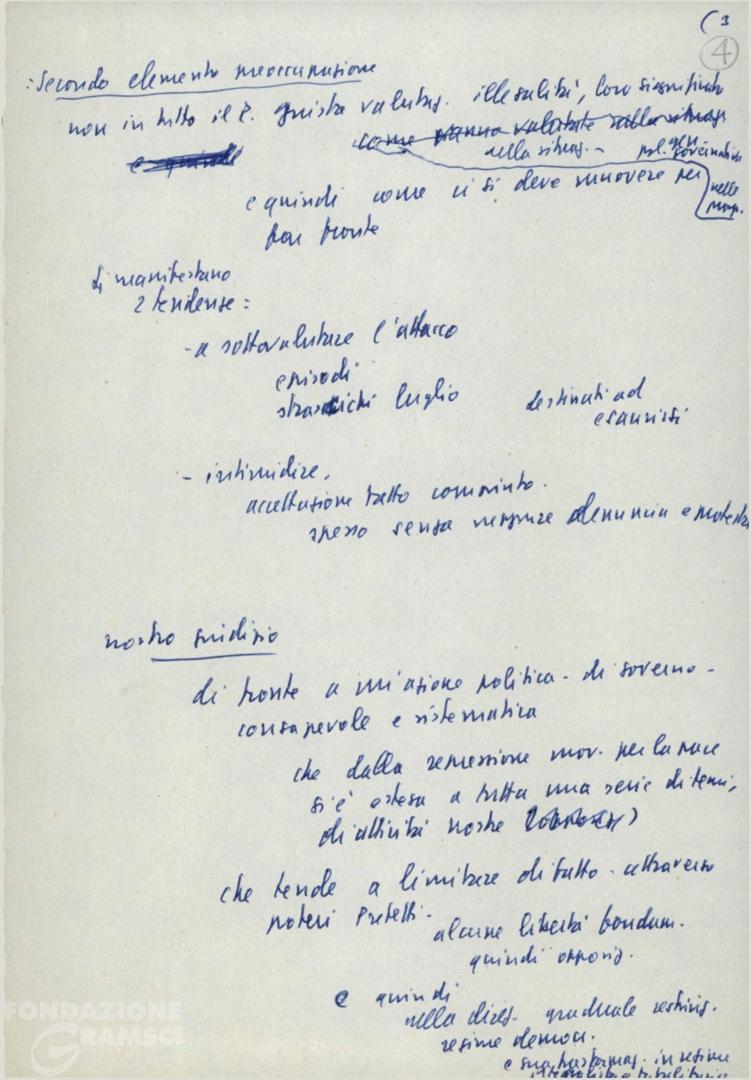 ( 3
4
: Secondo elemento preoccupazione
non in tutto il P. giusta valutaz. illegalità, loro significato
come vanno valutate nella situaz.
nella situaz. - pol. gen. governativa
e quindi
e quindi come ci si deve muovere per nelle
far fronte
Si manifestano
2 tendenze:
- a sottovalutare l'attacco
episodi
strascichi luglio destinati ad
esaurirsi
- intimidire,
accettazione fatto compiuto.
spesso senza neppure denuncia e protesta
nostro giudizio
di fronte a un'azione politica - di governo -
consapevole e sistematica
che dalla repressione mov. per la pace
si è estesa a tutta una serie di temi,
di attività nostre
che tende a limitare di fatto - attraverso
poteri Prefetti -
alcune libertà fondam.
quindi opposiz.
e quindi
nella direz. graduale restriz.
regime democr.
e sua trasformaz. in regime
FONDAZIONE
GRAMSCI